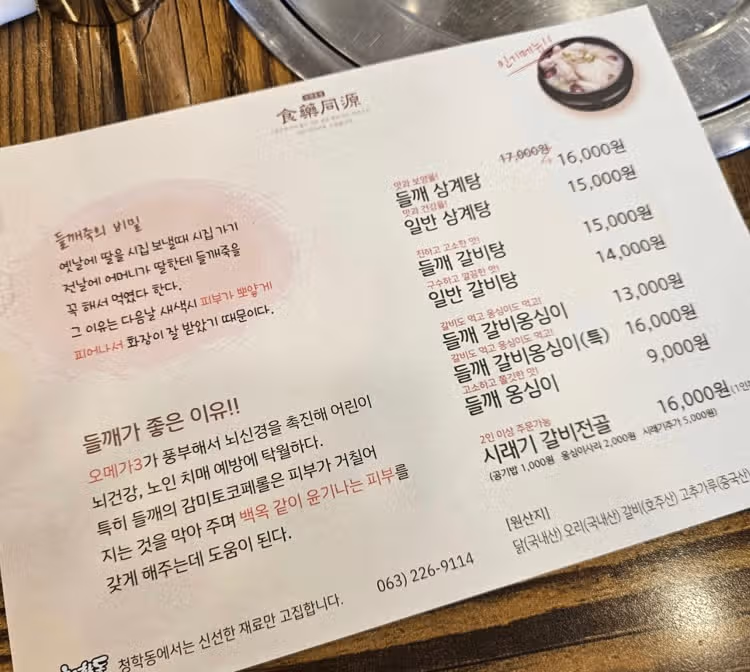 食藥同源
인기메뉴!!
들깨죽의 비밀
옛날에 딸을 시집 보낼때 시집 가기
전날에 어머니가 딸한테 들깨죽을
꼭 해서 먹였다 한다.
그 이유는 다음날 새색시 피부가 뽀얗게
피어나서 화장이 잘 받았기 때문이다.
들깨가 좋은 이유!!
오메가3가 풍부해서 뇌신경을 촉진해 어린이
뇌건강, 노인 치매 예방에 탁월하다.
특히 들깨의 감미토코페롤은 피부가 거칠어
지는 것을 막아 주며 백옥 같이 윤기나는 피부를
갖게 해주는데 도움이 된다.
청학동에서는 신선한 재료만 고집합니다.
063) 226-9114
맛과 보양을!
들깨 삼계탕 17,000원 16,000원
맛과 건강을!
일반 삼계탕 15,000원
진하고 고소한 맛!
들깨 갈비탕 15,000원
구수하고 깔끔한 맛!
일반 갈비탕 14,000원
갈비도 먹고 옹심이도 먹고!
들깨 갈비옹심이 13,000원
갈비도 먹고 옹심이도 먹고!
들깨 갈비옹심이(특) 16,000원
고소하고 쫄깃한 맛!
들깨 옹심이 9,000원
2인 이상 주문가능
시래기 갈비전골 16,000원(1인
(공기밥 1,000원 옹심이사리 2,000원 시래기추가 5,000원)
[원산지]
닭(국내산) 오리(국내산) 갈비(호주산) 고추가루(중국산)